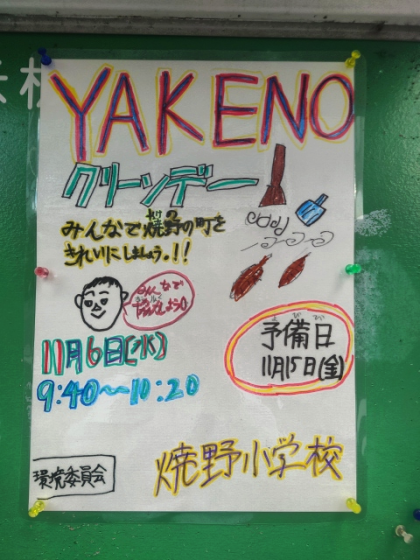 YAKENO
クリーンデー
みんなで焼野の町を
きれいにしましょう.!!
みんなで
11月6日(水)
9:40〜10:20
予備日
11月15日(金)
環境委員会
焼野小学校